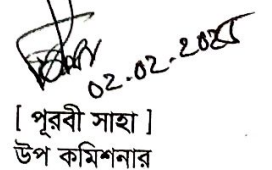 02.02.2025
[ পূরবী সাহা ]
উপ কমিশনার